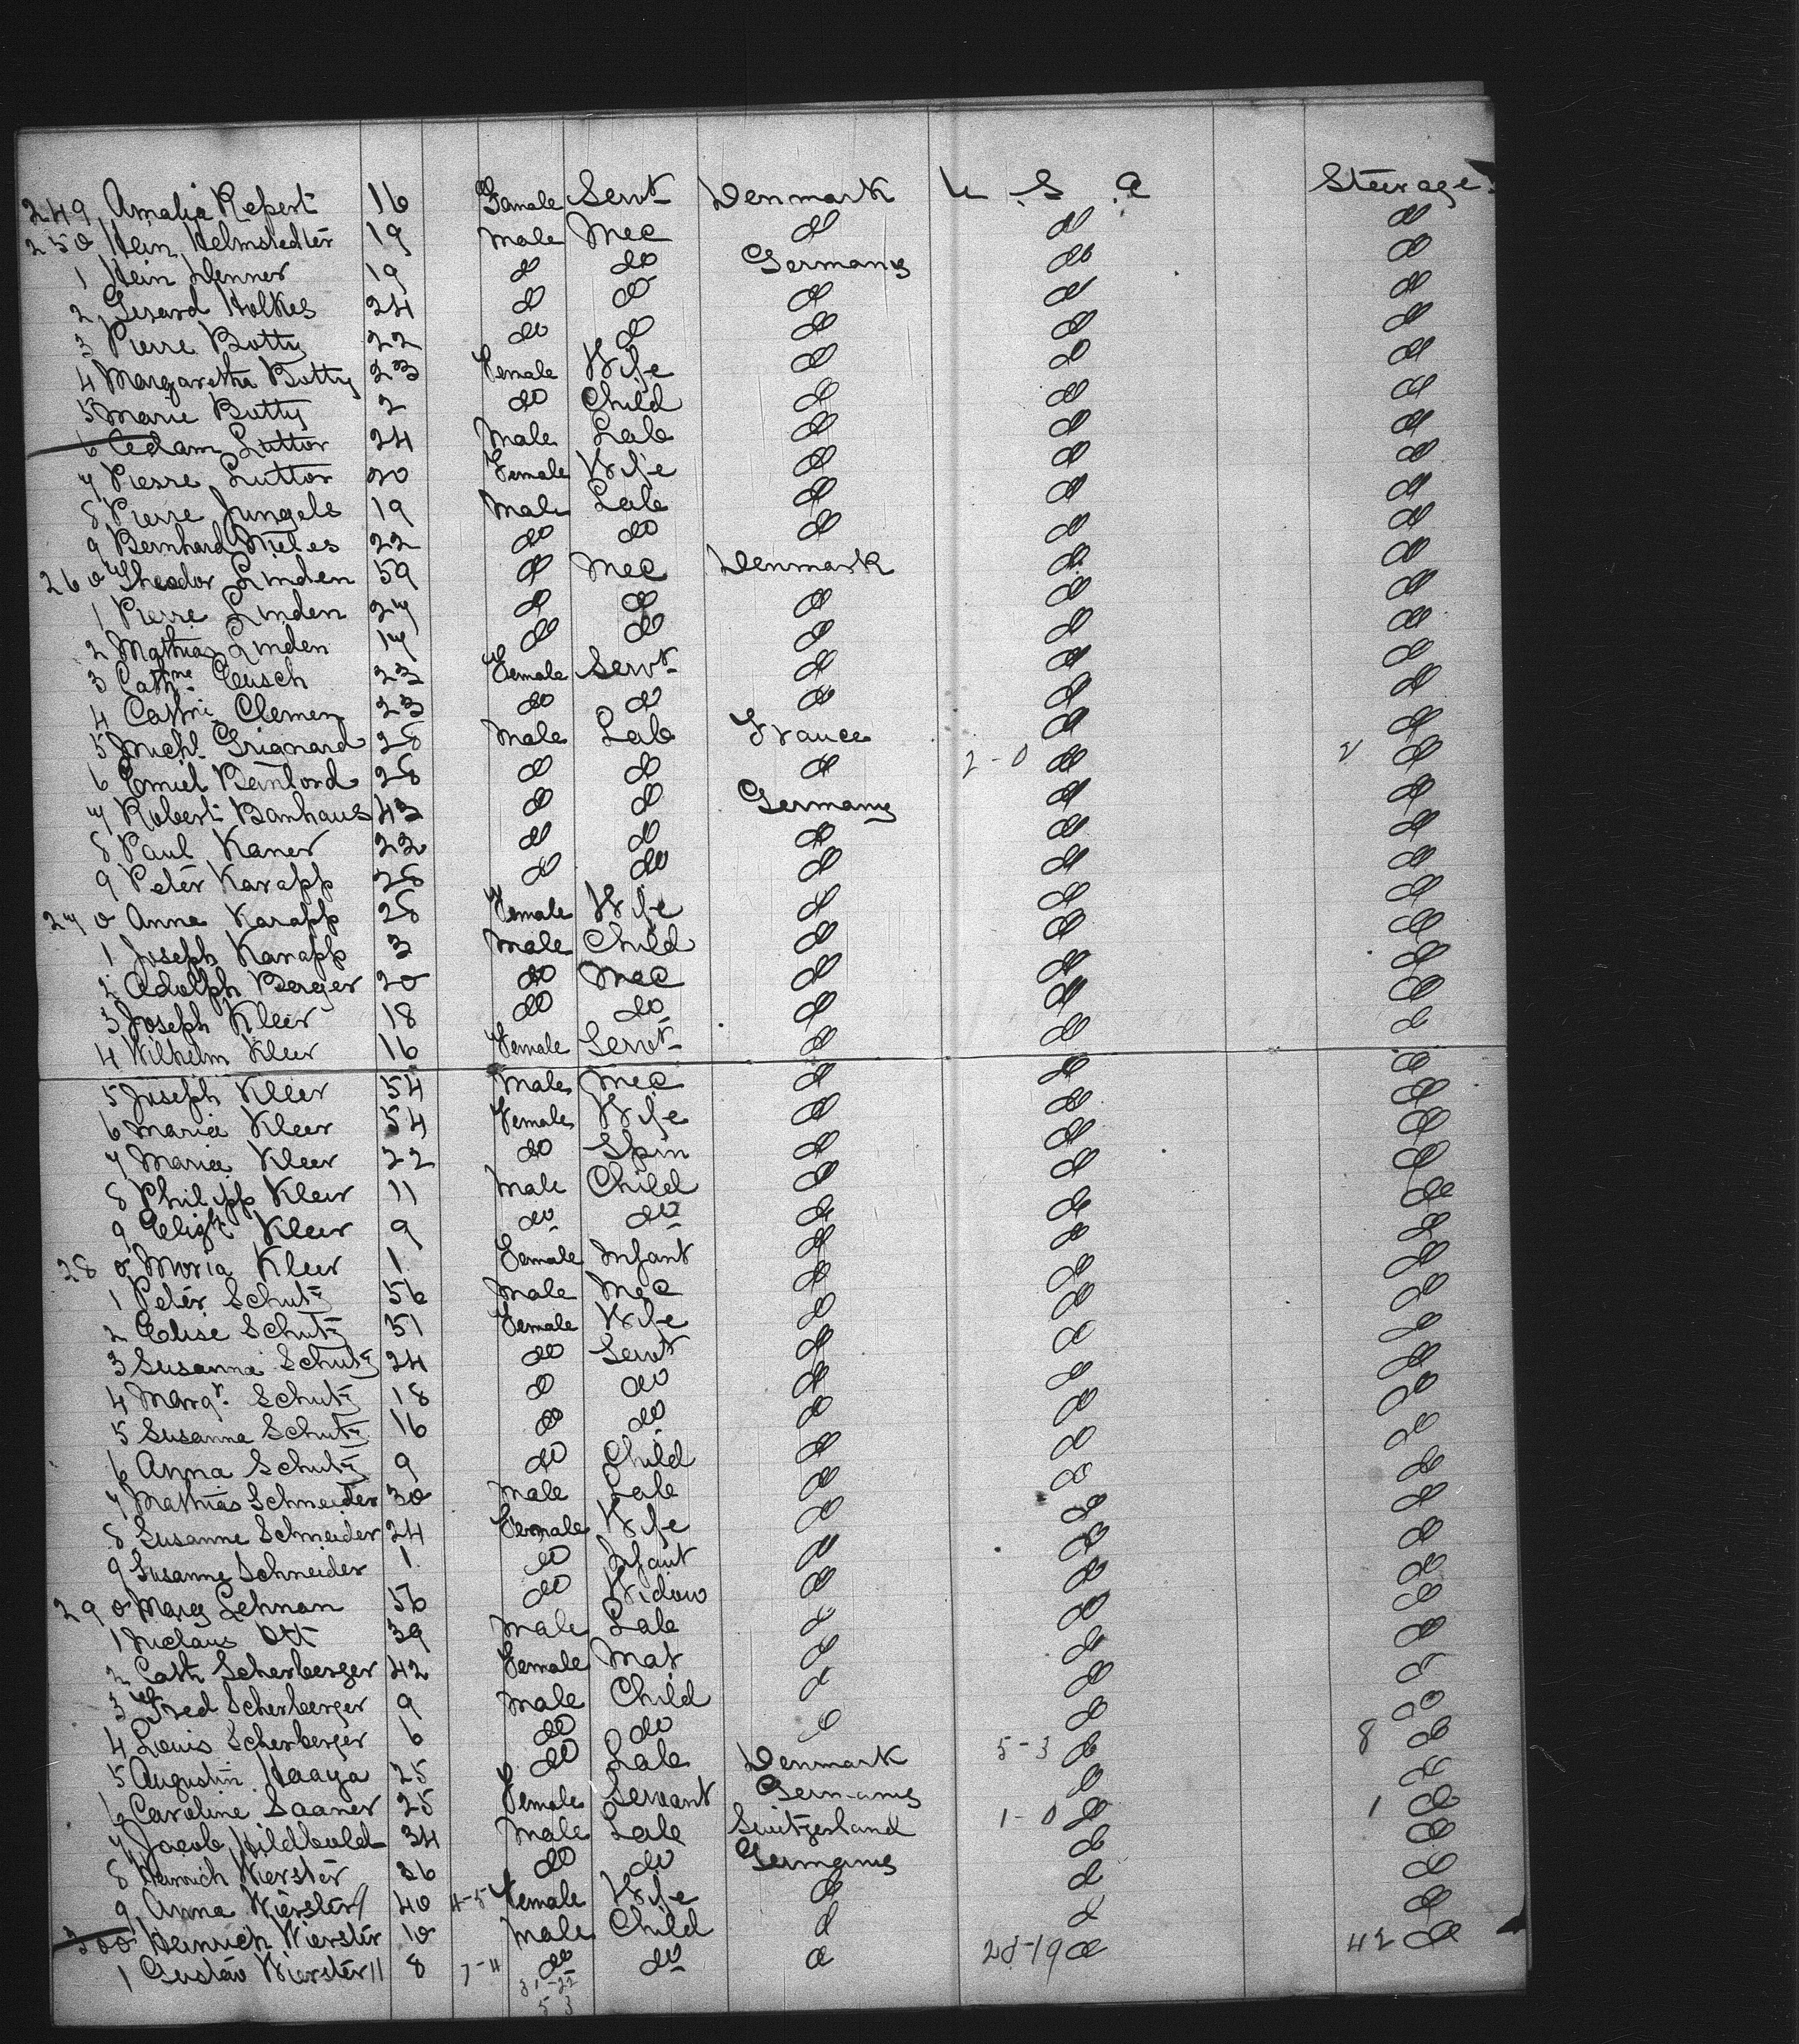 249 Amalia Repert 16 Female Servt Denmark U.S.A. Steerage
250 Hein Helmstedter 19 Male Mec do do do
1 Hein Denner 19 do do Germany do do
2 Gerard Holkes 24 do do do do do
3 Pierre Botty 22 do do do do do
4 Margaretha Botty 23 Female Wife do do do
5 Marie Botty 2 do Child do do do
6 Adam Luttor 24 Male Lab do do do
7 Pierre Luttor 20 Female Wife do do do
8 Pierre Jungels 19 Male Lab do do do
9 Bernhard Nieles 22 do do do do do
260 Theodor Linden 59 do Mec Denmark do do
1 Pierre Linden 27 do do do do do
2 Mathias Linden 17 do do do do do
3 Cathne Eusch 23 Female Servt do do do
4 Cathri Clemen 23 do do do do do
5 Michl Grignard 28 Male Lab France do do
6 Emiel Banlord 28 do do do 2-0 do 2 do
7 Robert Banhaus 43 do do Germany do do
8 Paul Kaner 22 do do do do do
9 Peter Karapp 28 do do do do do
270 Anna Karapp 28 Female Wife do do do
1 Joseph Karapp 3 Male Child do do do
2 Adolph Berger 20 do Mec do do do
3 Joseph Kleer 18 do do do do do
4 Wilhelm Kleer 16 Female Servt do do do
5 Joseph Kleer 54 Male Mec do do do
6 Maria Kleer 54 Female Wife do do do
7 Maria Kleer 22 do Spin do do do
8 Philipp Kleer 11 Male Child do do do
9 Eligh Kleer 9 do do do do do
280 Moria Kleer 1 Female Infant do do do
1 Peter Schutz 56 Male Mec do do do
2 Elise Schutz 51 Female Wife do do do
3 Susanna Schutz 24 do Servt do do do
4 Margr. Schutz 18 do do do do do
5 Susanna Schutz 16 do do do do do
6 Anna Schutz 9 do Child do do do
7 Mathias Schneider 30 Male Lab do do do
8 Susanne Schneider 24 Female Wife do do do
9 Susanne Schneider 1 do Infant do do do
290 Marg Lehnan 56 do Widow do do do
1 Niclaus Ott 39 Male Lab do do do
2 Cath Scherberger 42 Female Mat do do do
3 Fred Scherberger 9 Male Child do do do
4 Louis Scherberger 6 do do do do do
5 Augustin Haaya 25 do Lab Denmark 5-3 do 8 do
6 Caroline Saaner 25 Female Servant Germany do do
7 Jacob Hildbold 34 Male Lab Switzerland 1-0 do 1 do
8 Heinrich Wierster 36 do do Germany do do
9 Anna Wierster 40 4-5 Female Wife do do do
300 Heinrich Wierster 10 Male Child do do do
1 Gustav Wierster 8 7-11 do do do 28-19 do 42 do
31-22
5 3